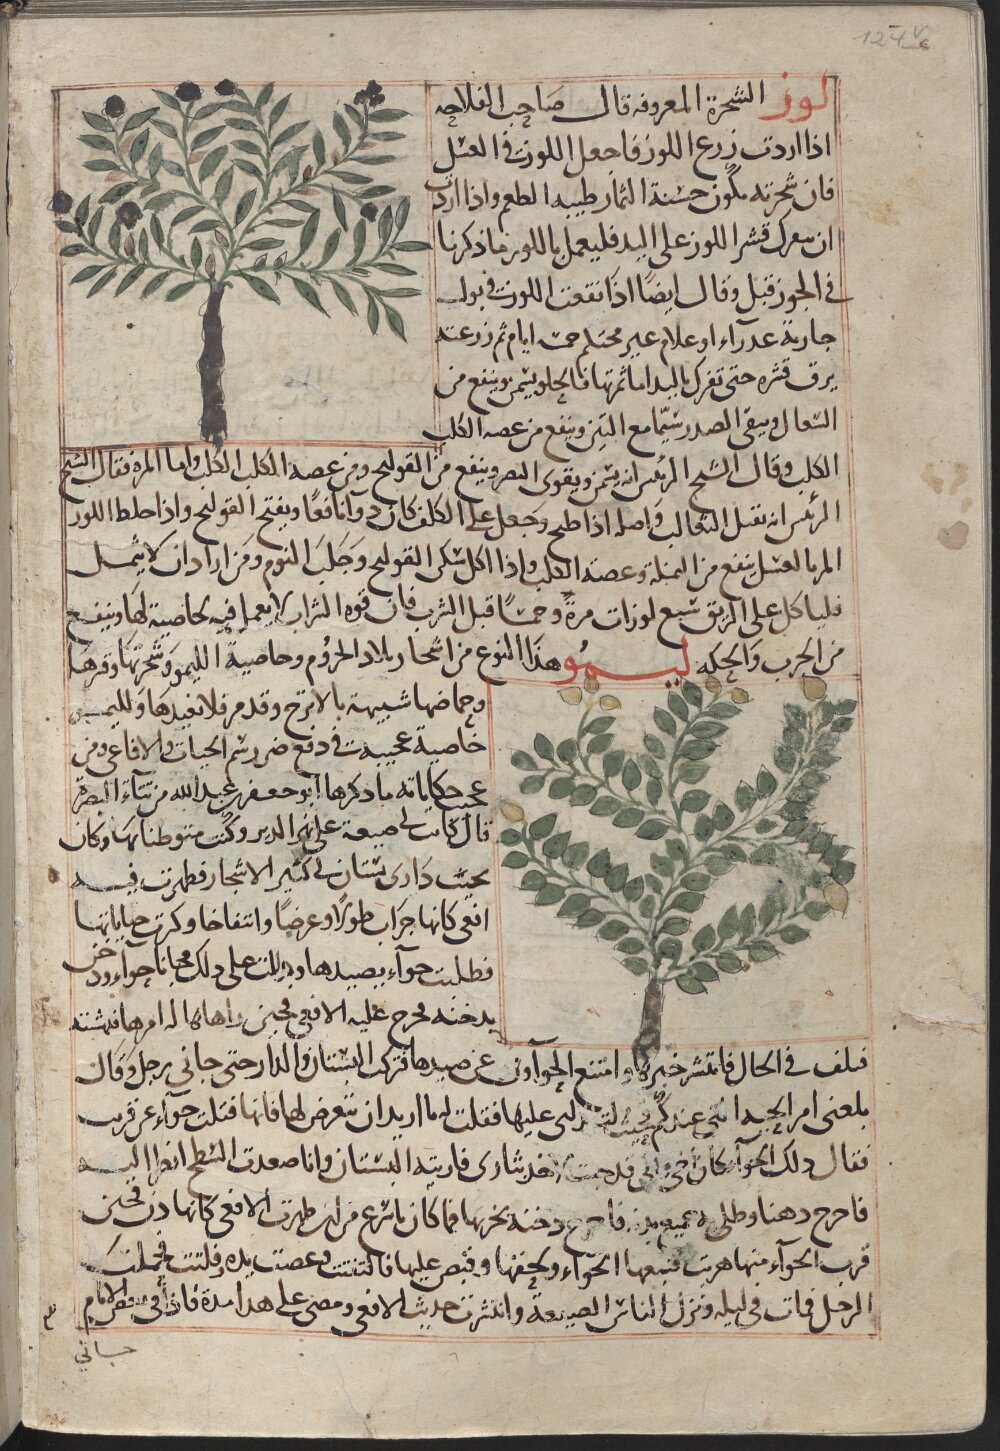 لوز الشجرة المعروفه قال صاحب الفلاحه
اذا اردت زرع اللوز فاجعل اللوزة في العسل
فان شجرته تكون حسنة الثمار طيبه الطعم واذا اردت
ان يفرك قشر اللوز على اليد فليعمل باللوز ما ذكرنا
في الجوز قبل وقال ايضًا اذا نقعت اللوزة في بول
جارية عدرآء او غلام غير محتلم خمسه ايام ثم زرعته
يرق قشره حتى تفرك باليد اما ثمرتها فالحلو يسمن وينفع من
السعال وينقى الصدر سيّما مع التين وينفع من عضه الكلب
الكلب وقال الشيخ الرئيس انه يسمن ويقوى البصر وينفع من القولنج ومن عضه الكلب الكلب واما المر فقال الشيخ
الرئس انه يقتل الثعالب واصله اذا طبخ وجعل على الكلف كان دوآء نافعًا ويفتح القولنج واذا خلط اللوز
المر بالعسل ينفع من النملة وعضه الكلب واذا اكل سكن القولنج وجَلبَ النوم ومن اراد ان لا يثمل
فلياكل على الريق سبع لوزات مرةً وخمسًا قبل الشرب فان قوه الشراب لا يعمل فيه بخاصية لها وينفع
من الجرب والحكه ليمو هذا النوع من اشجار بلاد الحروم وخاصية الليمو وشجرتها وقرفها
وحماضها شبيهة بالاترج وقد مر فلا نعيدها ولليمو
خاصية عجيبة في دفع ضرر سم الحيات والافاعي ومن
عجيب حكاياته ما ذكرها ابو جعفر بن عبد الله من تناء البصرة
قال كانت لي ضيعة على نهر الدير وكنت متوطنا بها وكان
بجنب دارى بستان لي كثير الاشجار فظهرت فيه
افعى كانها جراب طولًا وعرضًا وانتفاخا وكثرت جناياتها
فطلبت حوآء يصيدها وبذلت على ذلك فجانا حوآء ودخن
بدخنه فخرج عليه الافعى فحين راها هاله امرها فنهشته
فتلف في الحال فانتشر خبرها وامتنع الحوآون عن صيدها فتركت البستان والدار حتى جاني رجل وقال
بلغنى امر الحيه التي عندكم فجيت لتدلني عليها فقلت له ما اريد ان تتعرض لها فانها قتلت حوآء عن قريب
فقال ذلك الحوآء كان اخي واني قد جيت لاخذ ثاري فاريته البستان وانا صعدت السطح انظر اليه
فاخرج دهنا وطلى به جميع بدنه فاخرج دخنه بخر بها فما كان باسرع من ان ظهرت الافعى كانها دن فحين
قرب الحوآء منها هربت فتبعها الحوآء ولحقها وقبض عليها فالتفتت وعضت يده وفلتت فحملت
الرجل فمات في ليله وترك الناس الضيعة وانتشرت حديث الافعى ومضى على هذا مدة فاذا في بعض الايام
جاني